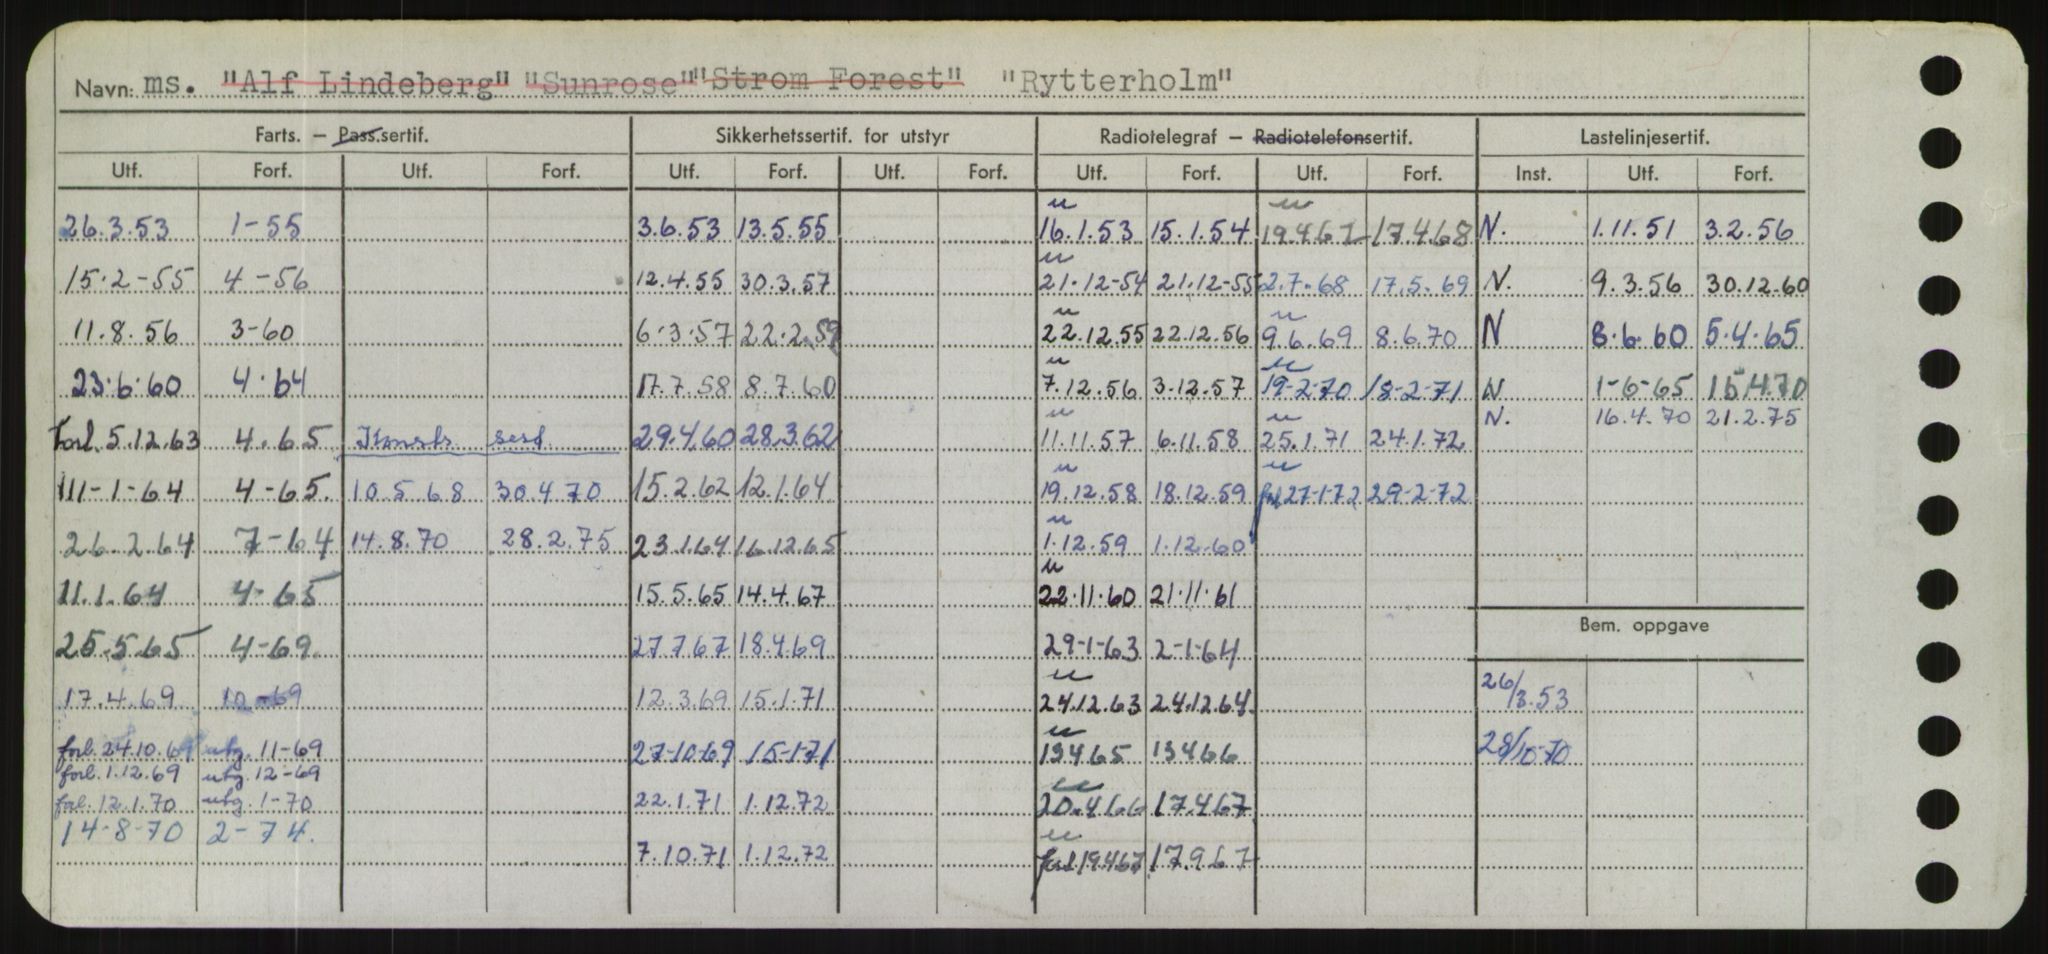 Navn: ms. "Alf Lindeberg" "Sunrose" "Strom Forest" "Rytterholm"
Farts. — Pass.sertif. Sikkerhetssertif. for utstyr Radiotelegraf — Radiotelefonsertif. Lastelinjesertif.
Utf. Forf. Utf. Forf. Utf. Forf. Utf. Forf. Utf. Forf. Utf. Forf. Inst. Utf. Forf.
26.3.53 1-55 3.6.53 13.5.55 16.1.53 15.1.54 19.4.67 17.4.68 N. 1.11.51 3.2.56
15.2-55 4-56 12.4.55 30.3.57 21.12-54 21.12-55 2.7.68 17.5.69 N. 9.3.56 30.12.60
11.8.56 3-60 6.3.57 22.2.59 22.12.55 22.12.56 9.6.69 8.6.70 N 8.6.60 5.4.65
23.6.60 4.64 17.7.58 8.7.60 7.12.56 3.12.57 19-2-70 18-2-71 N 1-6-65 15.4.70
N. 16.4.70 21.2.75
Forl. 5.12.63 4.65 sert 29.4.60 28.3.62 11.11.57 6.11.58 25.1.71 24.1.72
11-1-64 4-65. 10.5.68 30.4.70 15.2.62 12.1.64 19.12.58 18.12.59 27-1-72 29-2-72
26.2.64 7-64 14.8.70 28.2.75 23.1.64 16.12.65 1.12.59 1.12.60
11.1.64 4-65 15.5.65 14.4.67 22.11.60 21.11.61
25.5.65 4-69 27.7.67 18.4.69 29-1-63 2-1-64
Bem. oppgave
17.4.69 10-69 12.3.69 15.1.71 24.12.63 24.12.64 26/3.53
forl. 24.10.69 utg. 11-69 27-10-69 15-1-71 13465 13466 28/10-70
forl. 1.12.69 utg. 12-69
forl. 12.1.70 utg. 1-70 22.1.71 1.12.72 20.4.66 17.4.67
14-8-70 2-74.
7.10.71 1.12.72 forl 19467 17967